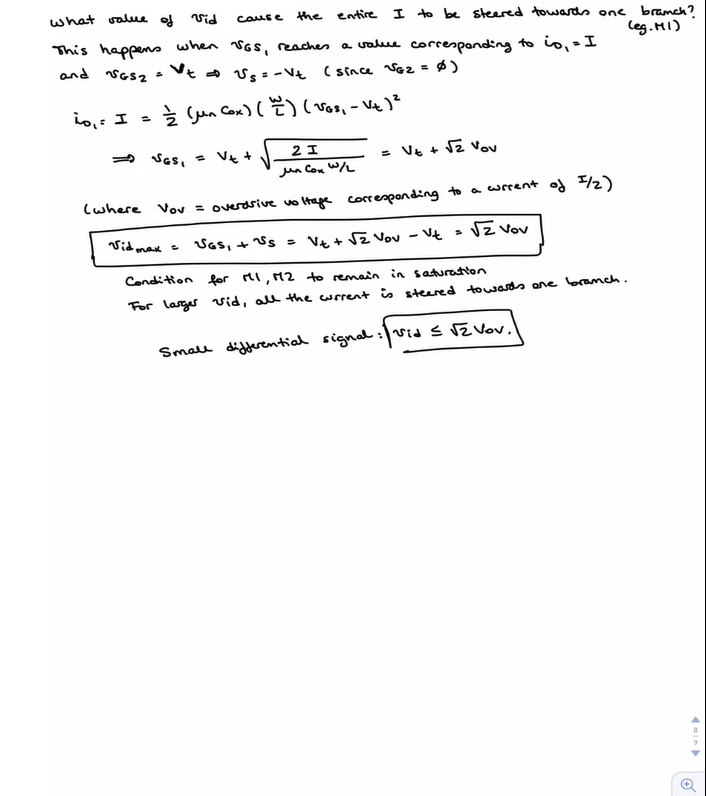 What value of vid cause the entire I to be steered towards one branch?
(eg. M1)
This happens when vGS1 reaches a value corresponding to iD1 = I
and vGS2 = Vt ⇒ vS = -Vt (since vG2 = ∅)
iD1 = I = 1/2 (μn Cox) (W/L) (vGS1 - Vt)²
⇒ vGS1 = Vt + √(2I / μn Cox W/L) = Vt + √2 Vov
(where Vov = overdrive voltage corresponding to a current of I/2)
vid max = vGS1 + vS = Vt + √2 Vov - Vt = √2 Vov
Condition for M1, M2 to remain in saturation
For larger vid, all the current is steered towards one branch.
Small differential signal: vid ≤ √2 Vov.
8
9